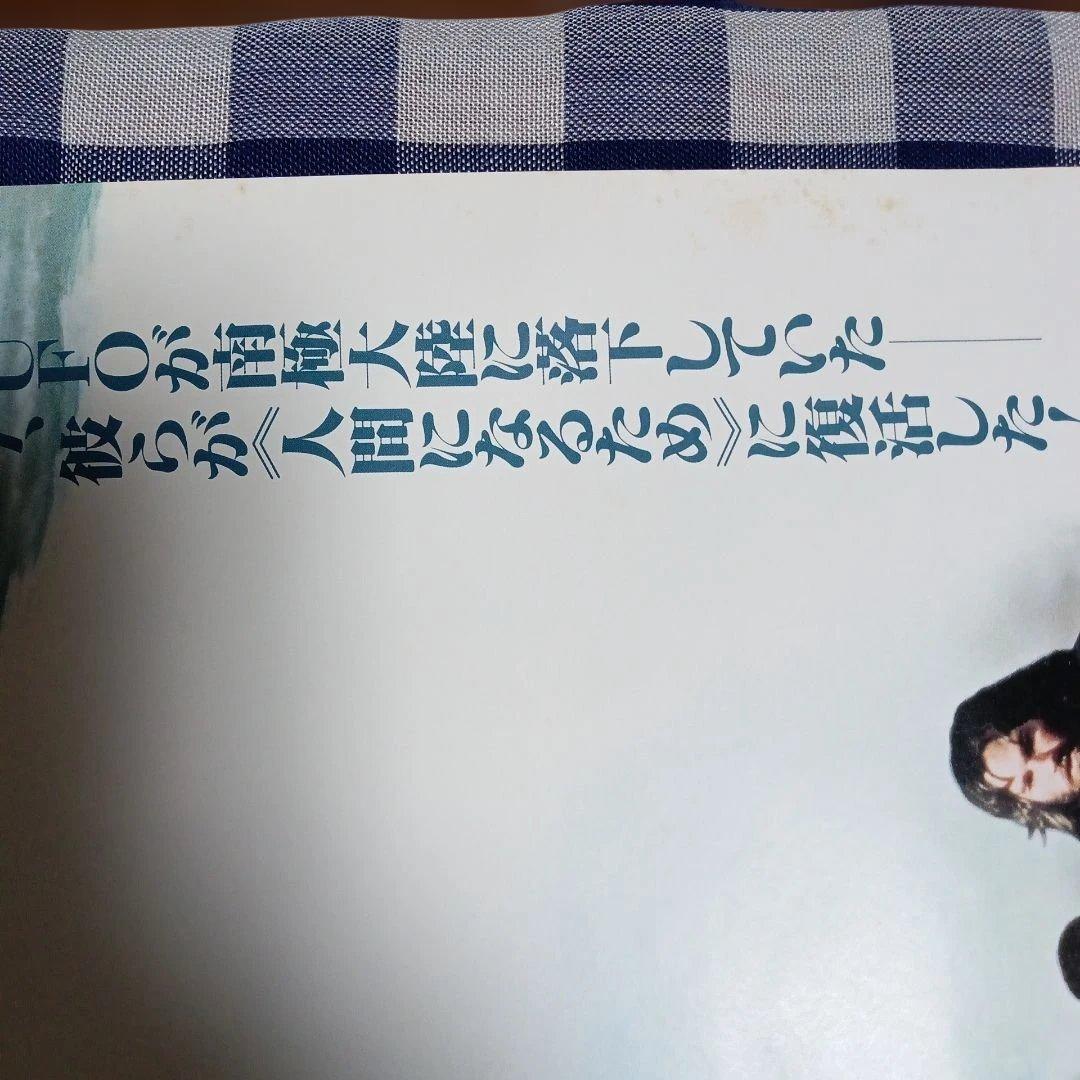 UFOが南極大陸に落下していた——
彼らが《人間になるため》に復活した!